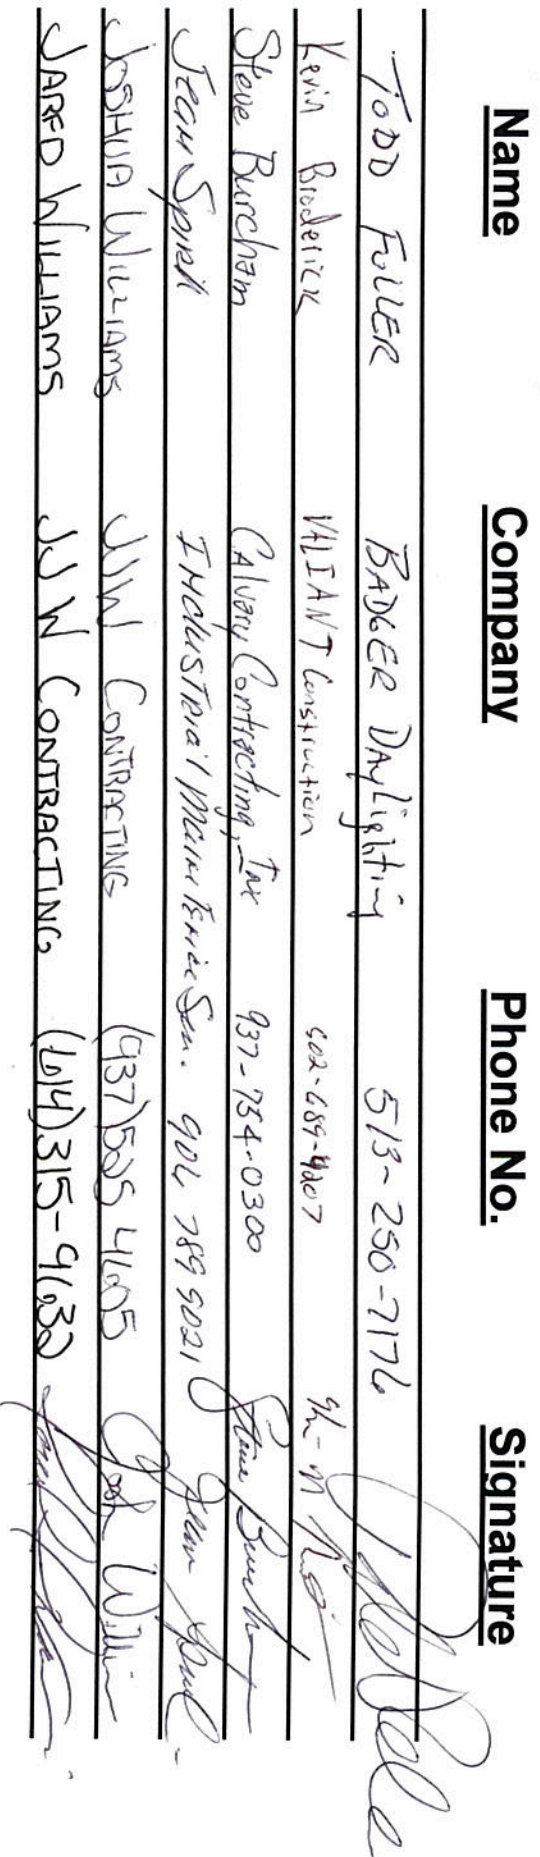 Name Company Phone No. Signature
TODD FULLER BADGER DAyLighting 513-250-7176
Kevin Broderick VALIANT Construction
Steve Burcham CAlvary Contracting, Inc 937-754-0300 Steve Burcham
Jean 904 789 9021 Jean
JOSHUA WILLIAMS JJW CONTRACTING (937)525 4605 Josh Willi
JARED WILLIAMS JJW CONTRACTING (614)315-9630